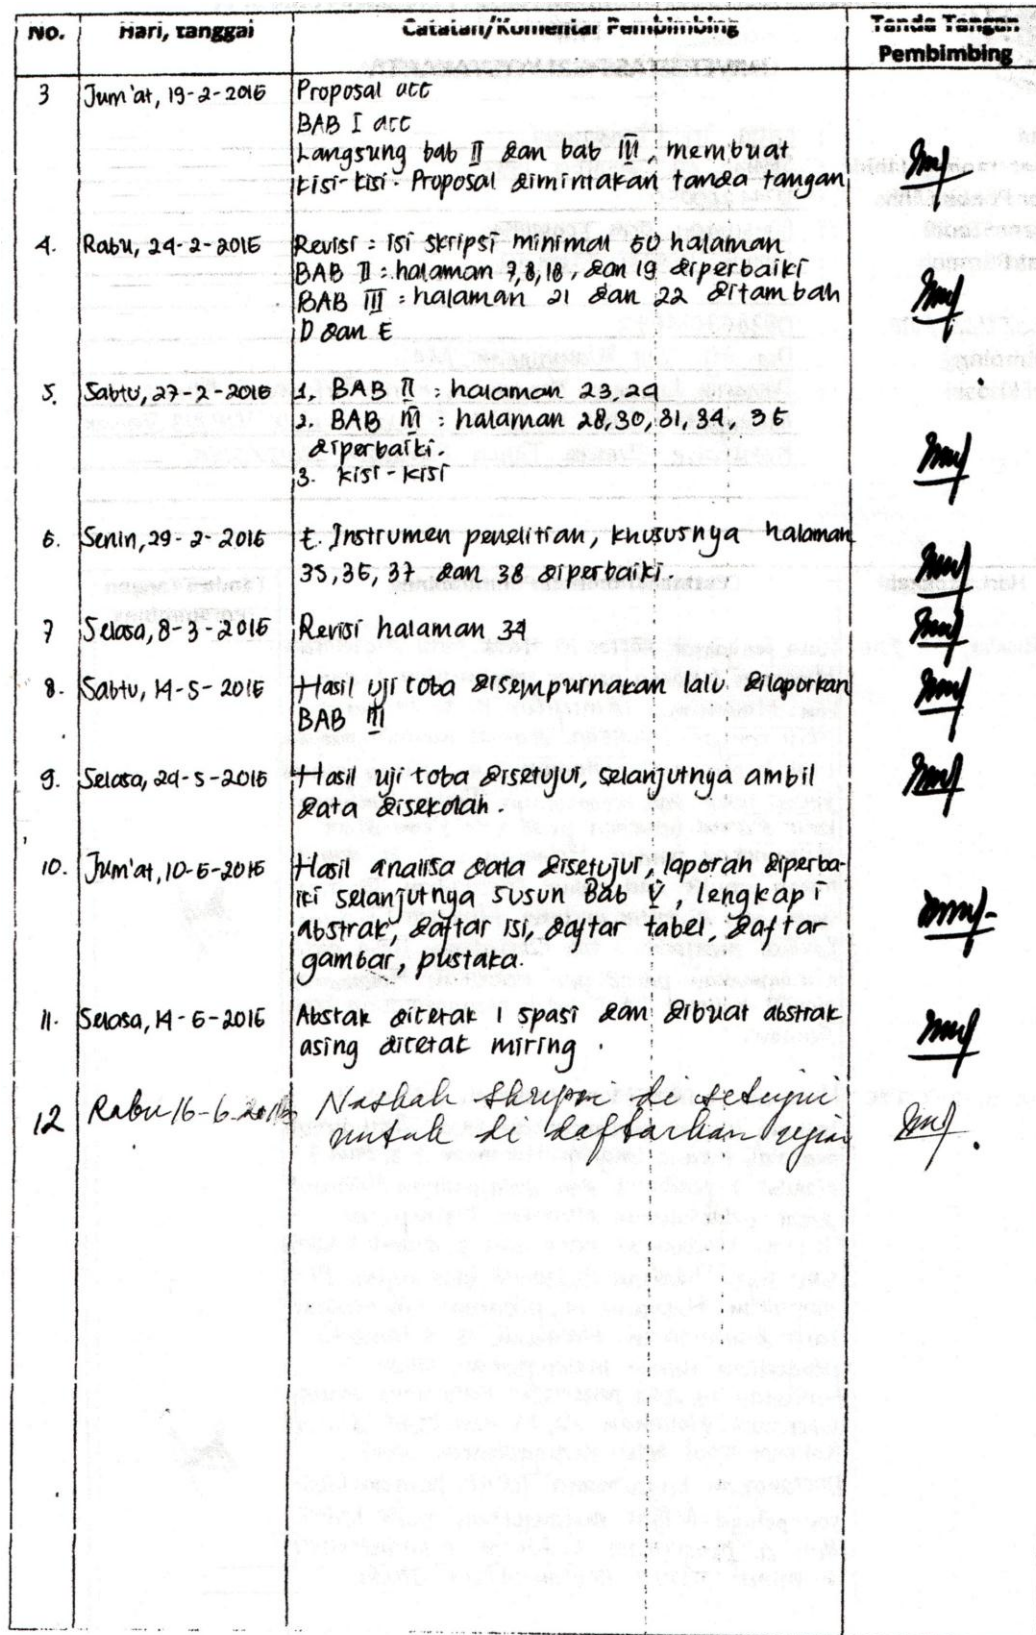 No. Hari, tanggal Catatan/Komentar Pembimbing Tanda Tangan
Pembimbing
3 Jum'at, 19-2-2016 Proposal acc
BAB I acc
Langsung bab II dan bab III, membuat
kisi-kisi. Proposal dimintakan tanda tangan
4. Rabu, 24-2-2016 Revisi : isi skripsi minimal 50 halaman
BAB II : halaman 7,8,18, dan 19 diperbaiki
BAB III : halaman 21 dan 22 ditambah
D dan E
5. Sabtu, 27-2-2016 1. BAB II : halaman 23,24
2. BAB III : halaman 28,30,31,34, 36
diperbaiki.
3. kisi-kisi
6. Senin, 29-2-2016 E. Instrumen penelitian, khususnya halaman
35,36,37 dan 38 diperbaiki.
7 Selasa, 8-3-2016 Revisi halaman 34
8. Sabtu, 14-5-2016 Hasil uji coba disempurnakan lalu dilaporkan
BAB III
9. Selasa, 24-5-2016 Hasil uji coba disetujui, selanjutnya ambil
data disekolah.
10. Jum'at, 10-6-2016 Hasil analisa data disetujui, laporan diperba-
iki selanjutnya susun Bab V, lengkapi
abstrak, daftar isi, daftar tabel, daftar
gambar, pustaka.
11. Selasa, 14-6-2016 Abstak dicetak 1 spasi dan dibuat abstrak
asing dicetak miring.
12 Rabu 16-6-2016 Naskah skripsi di setujui
untuk di daftarkan ujian